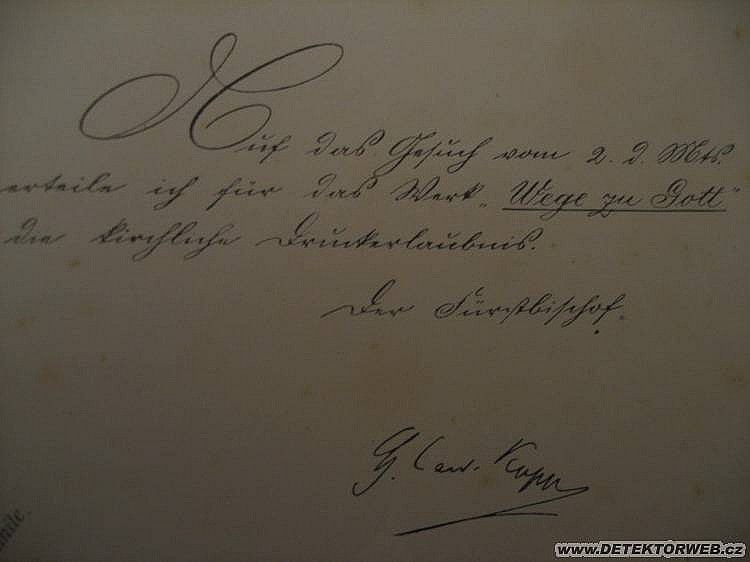 Auf das Gesuch vom 2. d. Mts.
erteile ich für das Werk „Wege zu Gott“
die kirchliche Druckerlaubnis.
Der Fürstbischof.
G. Card. Kopp
www.DETEKTORWEB.cz